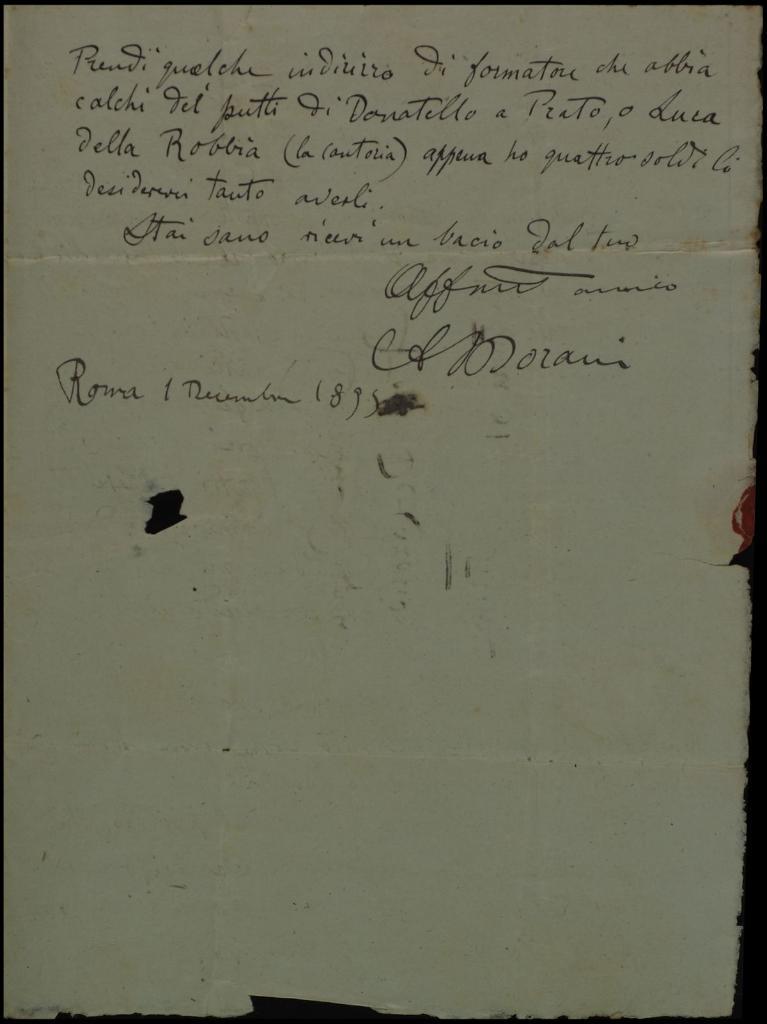 Prendi qualche indirizzo di formatore che abbia
calchi dei putti di Donatello a Prato, o Luca
della Robbia (la cantoria) appena ho quattro soldi li
desidererei tanto averli.
Stai sano ricevi un bacio dal tuo
Affmo amico
A Morani
Roma 1 Decembre 1895